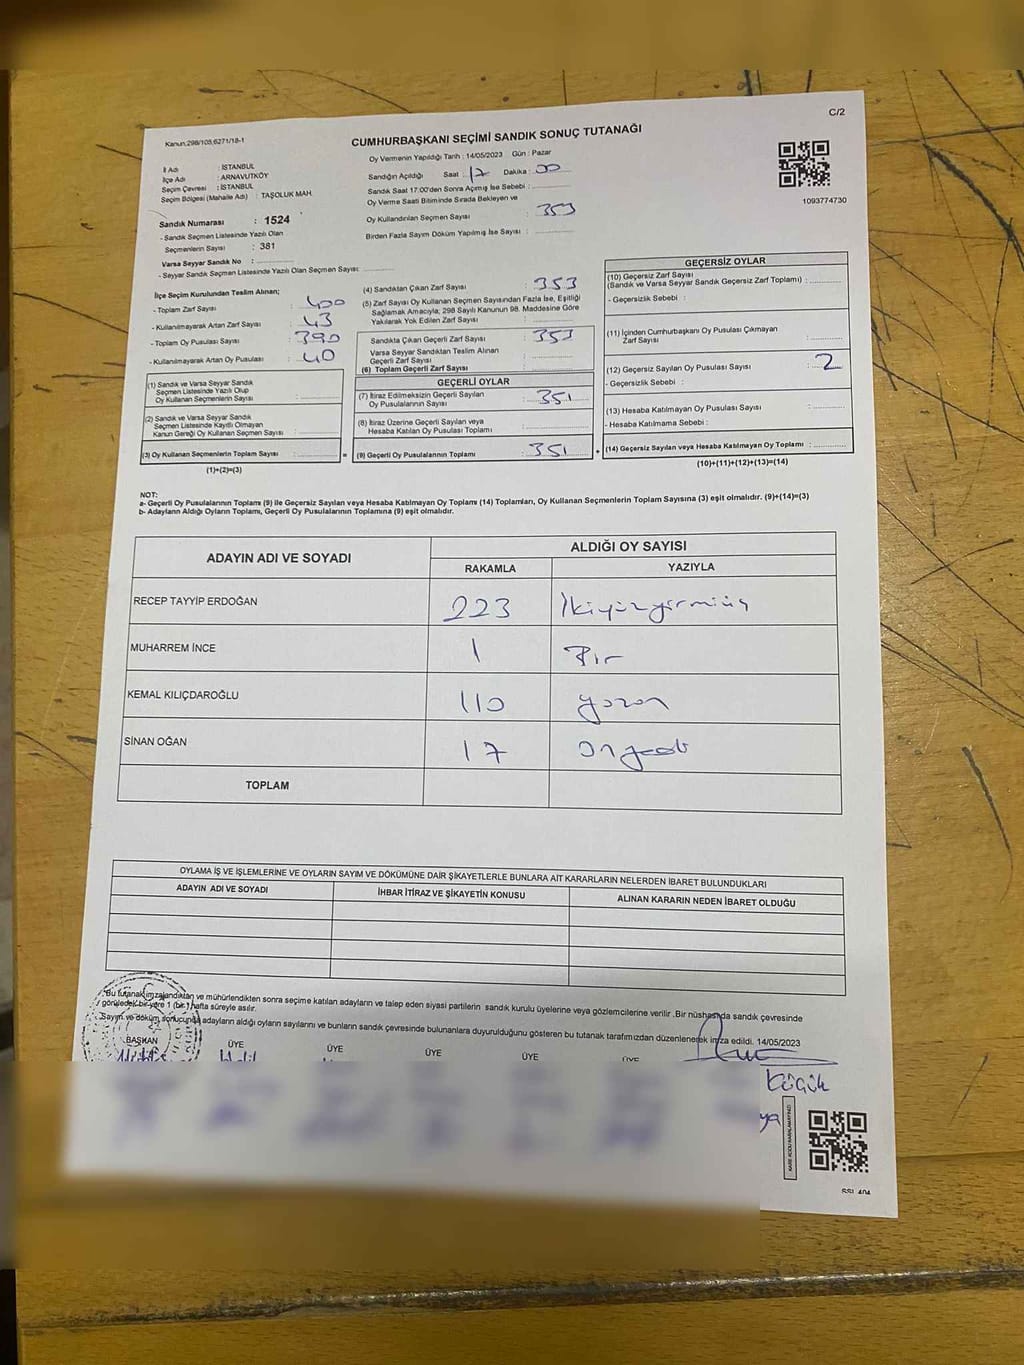 C/2
Kanun,298/105;6271/18-1
CUMHURBAŞKANI SEÇİMİ SANDIK SONUÇ TUTANAĞI
1093774730
İl Adı : İSTANBUL
İlçe Adı : ARNAVUTKÖY
Seçim Çevresi : İSTANBUL
Seçim Bölgesi (Mahalle Adı) : TAŞOLUK MAH.
Sandık Numarası : 1524
- Sandık Seçmen Listesinde Yazılı Olan
Seçmenlerin Sayısı : 381
Varsa Seyyar Sandık No : ............
- Seyyar Sandık Seçmen Listesinde Yazılı Olan Seçmen Sayısı: ............
Oy Vermenin Yapıldığı Tarih : 14/05/2023 Gün : Pazar
Sandığın Açıldığı Saat : 17 Dakika : 00
Sandık Saat 17:00'den Sonra Açılmış İse Sebebi : ............
Oy Verme Saati Bitiminde Sırada Bekleyen ve
Oy Kullandırılan Seçmen Sayısı : 353
Birden Fazla Sayım Döküm Yapılmış İse Sayısı : ............
İlçe Seçim Kurulundan Teslim Alınan;
- Toplam Zarf Sayısı : 400
- Kullanılmayarak Artan Zarf Sayısı : 43
- Toplam Oy Pusulası Sayısı : 390
- Kullanılmayarak Artan Oy Pusulası : 40
(1) Sandık ve Varsa Seyyar Sandık
Seçmen Listesinde Yazılı Olup
Oy Kullanan Seçmenlerin Sayısı : ............
(2) Sandık ve Varsa Seyyar Sandık
Seçmen Listesinde Kayıtlı Olmayan
Kanun Gereği Oy Kullanan Seçmen Sayısı : ............
(3) Oy Kullanan Seçmenlerin Toplam Sayısı : ............ =
(1)+(2)=(3)
(4) Sandıktan Çıkan Zarf Sayısı : 353
(5) Zarf Sayısı Oy Kullanan Seçmen Sayısından Fazla İse, Eşitliği
Sağlamak Amacıyla; 298 Sayılı Kanunun 98. Maddesine Göre
Yakılarak Yok Edilen Zarf Sayısı : ............
Sandıkta Çıkan Geçerli Zarf Sayısı : 353
Varsa Seyyar Sandıktan Teslim Alınan
Geçerli Zarf Sayısı : ............
(6) Toplam Geçerli Zarf Sayısı : ............
GEÇERLİ OYLAR
(7) İtiraz Edilmeksizin Geçerli Sayılan
Oy Pusulalarının Sayısı : 351
(8) İtiraz Üzerine Geçerli Sayılan veya
Hesaba Katılan Oy Pusulası Toplamı : ............
(9) Geçerli Oy Pusulalarının Toplamı : 351 +
GEÇERSİZ OYLAR
(10) Geçersiz Zarf Sayısı
(Sandık ve Varsa Seyyar Sandık Geçersiz Zarf Toplamı) : ............
- Geçersizlik Sebebi :
(11) İçinden Cumhurbaşkanı Oy Pusulası Çıkmayan
Zarf Sayısı : ............
(12) Geçersiz Sayılan Oy Pusulası Sayısı : 2
- Geçersizlik Sebebi :
(13) Hesaba Katılmayan Oy Pusulası Sayısı : ............
- Hesaba Katılmama Sebebi :
(14) Geçersiz Sayılan veya Hesaba Katılmayan Oy Toplamı : ............
(10)+(11)+(12)+(13)=(14)
NOT:
a- Geçerli Oy Pusulalarının Toplamı (9) ile Geçersiz Sayılan veya Hesaba Katılmayan Oy Toplamı (14) Toplamları, Oy Kullanan Seçmenlerin Toplam Sayısına (3) eşit olmalıdır. (9)+(14)=(3)
b- Adayların Aldığı Oyların Toplamı, Geçerli Oy Pusulalarının Toplamına (9) eşit olmalıdır.
ADAYIN ADI VE SOYADI ALDIĞI OY SAYISI
RAKAMLA YAZIYLA
RECEP TAYYİP ERDOĞAN 223 İkiyüzyirmiüç
MUHARREM İNCE 1 Bir
KEMAL KILIÇDAROĞLU 110 yüzon
SİNAN OĞAN 17 Onyedi
TOPLAM
OYLAMA İŞ VE İŞLEMLERİNE VE OYLARIN SAYIM VE DÖKÜMÜNE DAİR ŞİKAYETLERLE BUNLARA AİT KARARLARIN NELERDEN İBARET BULUNDUKLARI
ADAYIN ADI VE SOYADI İHBAR İTİRAZ VE ŞİKAYETİN KONUSU ALINAN KARARIN NEDEN İBARET OLDUĞU
Bu tutanak imzalandıktan ve mühürlendikten sonra seçime katılan adayların ve talep eden siyasi partilerin sandık kurulu üyelerine veya gözlemcilerine verilir. Bir nüshası da sandık çevresinde
görülecek bir yere 1 (bir) hafta süreyle asılır.
Sayım ve döküm sonucunda adayların aldığı oyların sayılarını ve bunların sandık çevresinde bulunanlara duyurulduğunu gösteren bu tutanak tarafımızdan düzenlenerek imza edildi. 14/05/2023
BAŞKAN ÜYE ÜYE ÜYE ÜYE ÜYE
Küçük
ya